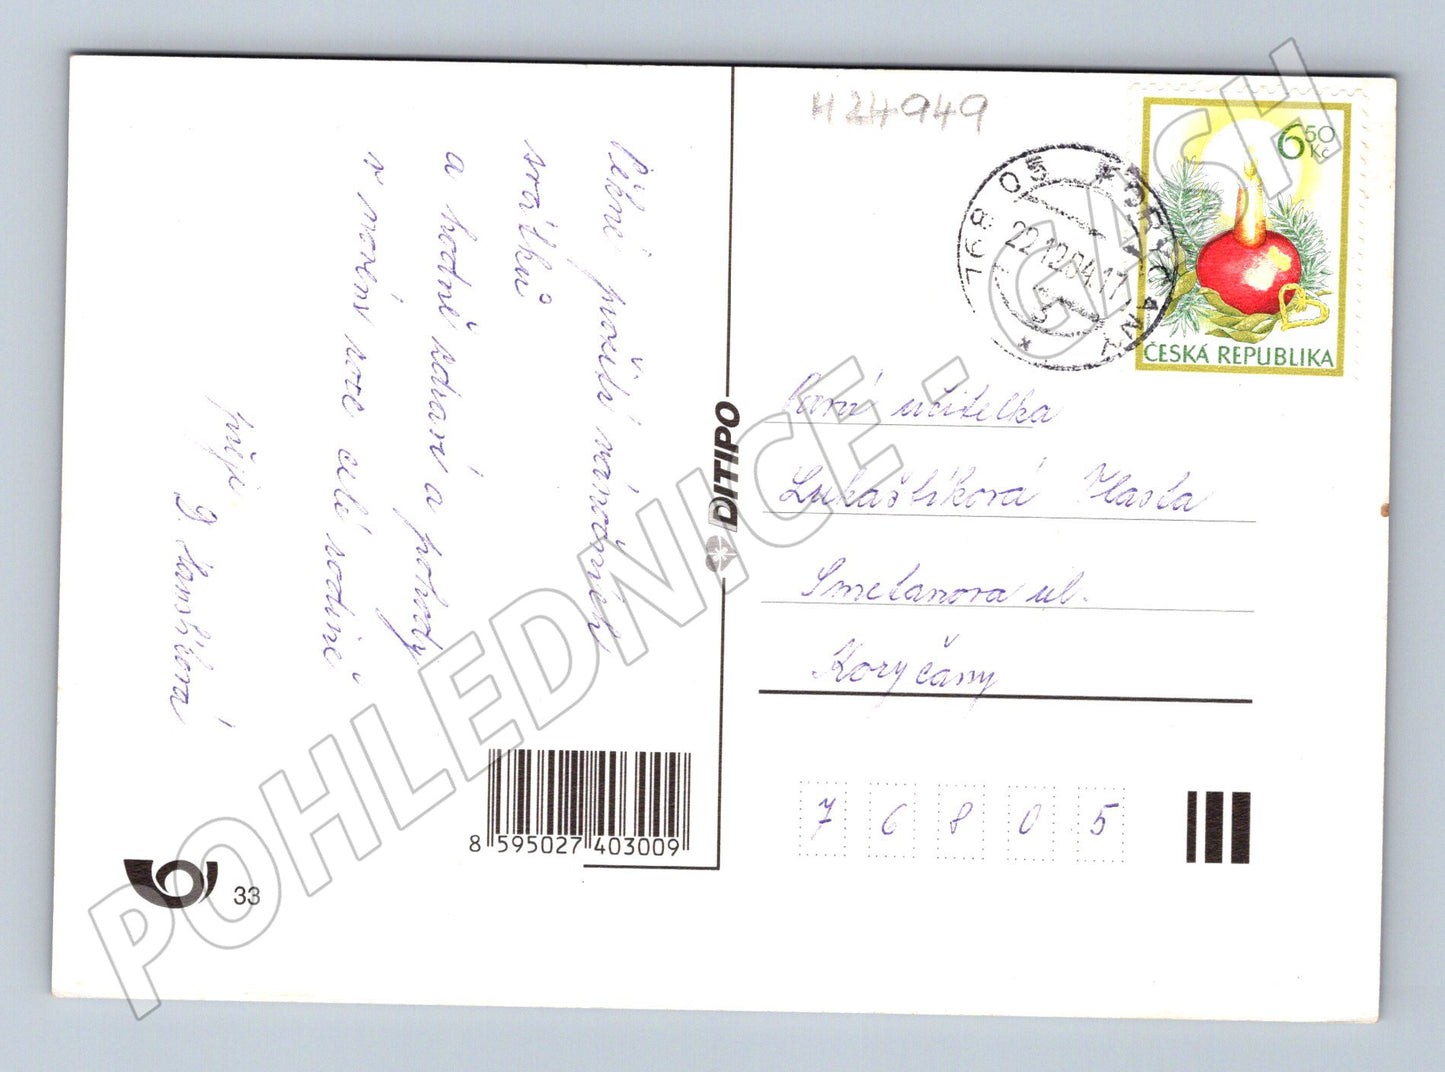 Pěkné prožití vánočních
svátků
a hodně zdraví a pohody
v novém roce celé rodině
přeje
H 24949
768 05 KORYČANY
22.12.04.17
5
6 50
Kč
ČESKÁ REPUBLIKA
DITIPO
Paní učitelka
Lukaštíková Vlasta
Smetanova ul.
Koryčany
7 6 8 0 5
8 595027 403009
33
POHLEDNICE - GASH